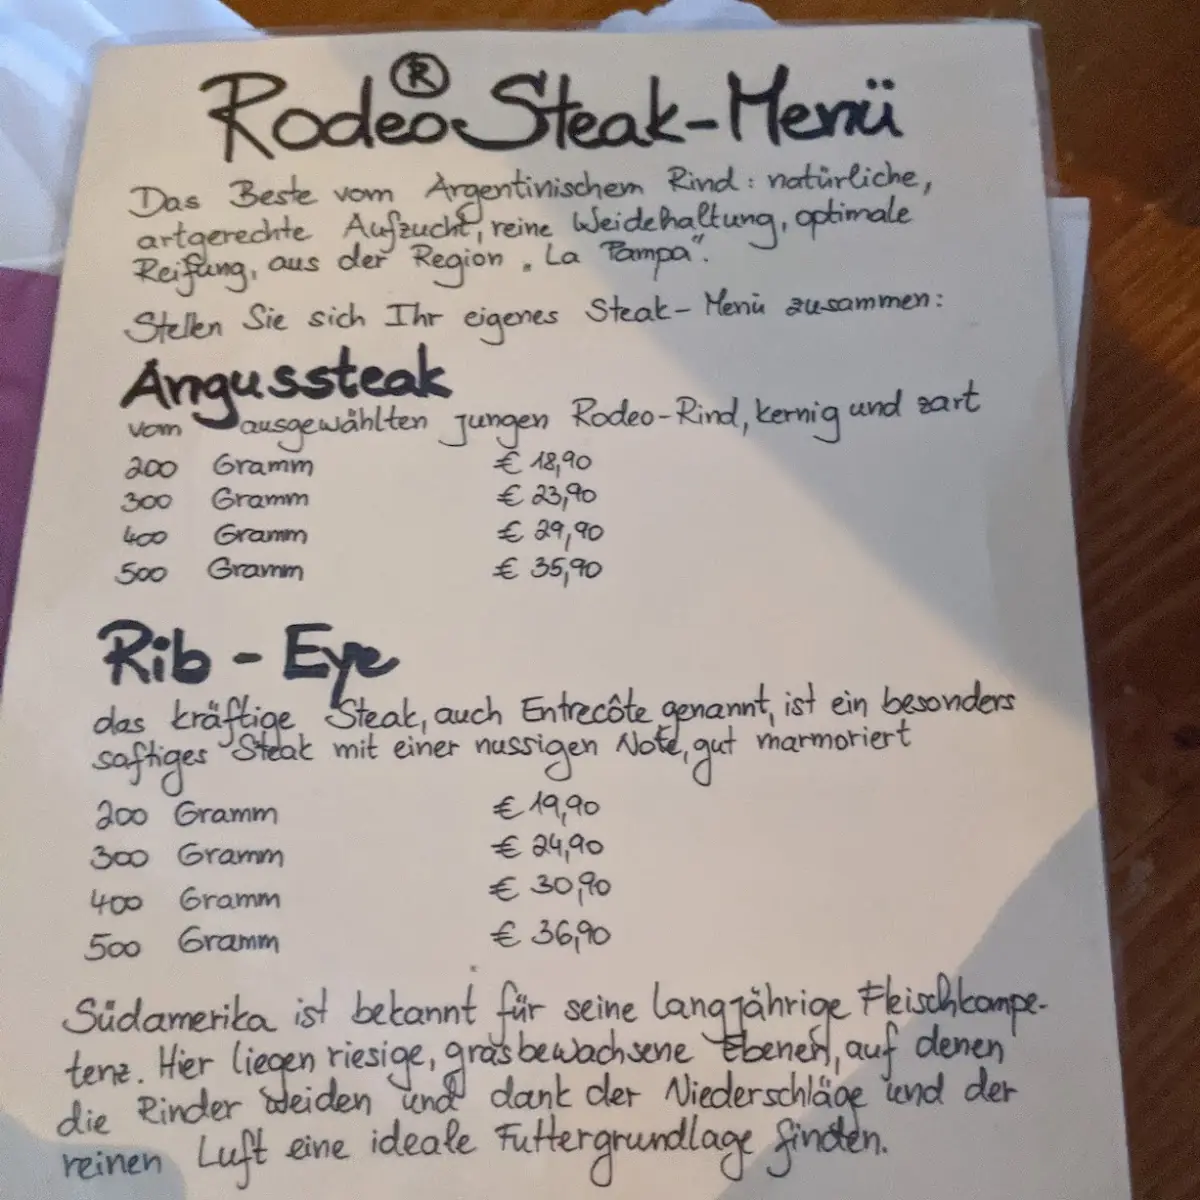 Rodeo® Steak-Menü
Das Beste vom Argentinischem Rind: natürliche,
artgerechte Aufzucht, reine Weidehaltung, optimale
Reifung, aus der Region „La Pampa".
Stellen Sie sich Ihr eigenes Steak-Menü zusammen:
Angussteak
vom ausgewählten jungen Rodeo-Rind, kernig und zart
200 Gramm € 18,90
300 Gramm € 23,90
400 Gramm € 29,90
500 Gramm € 35,90
Rib-Eye
das kräftige Steak, auch Entrecôte genannt, ist ein besonders
saftiges Steak mit einer nussigen Note, gut marmoriert
200 Gramm € 19,90
300 Gramm € 24,90
400 Gramm € 30,90
500 Gramm € 36,90
Südamerika ist bekannt für seine langjährige Fleischkompe-
tenz. Hier liegen riesige, grasbewachsene Ebenen, auf denen
die Rinder weiden und dank der Niederschläge und der
reinen Luft eine ideale Futtergrundlage finden.